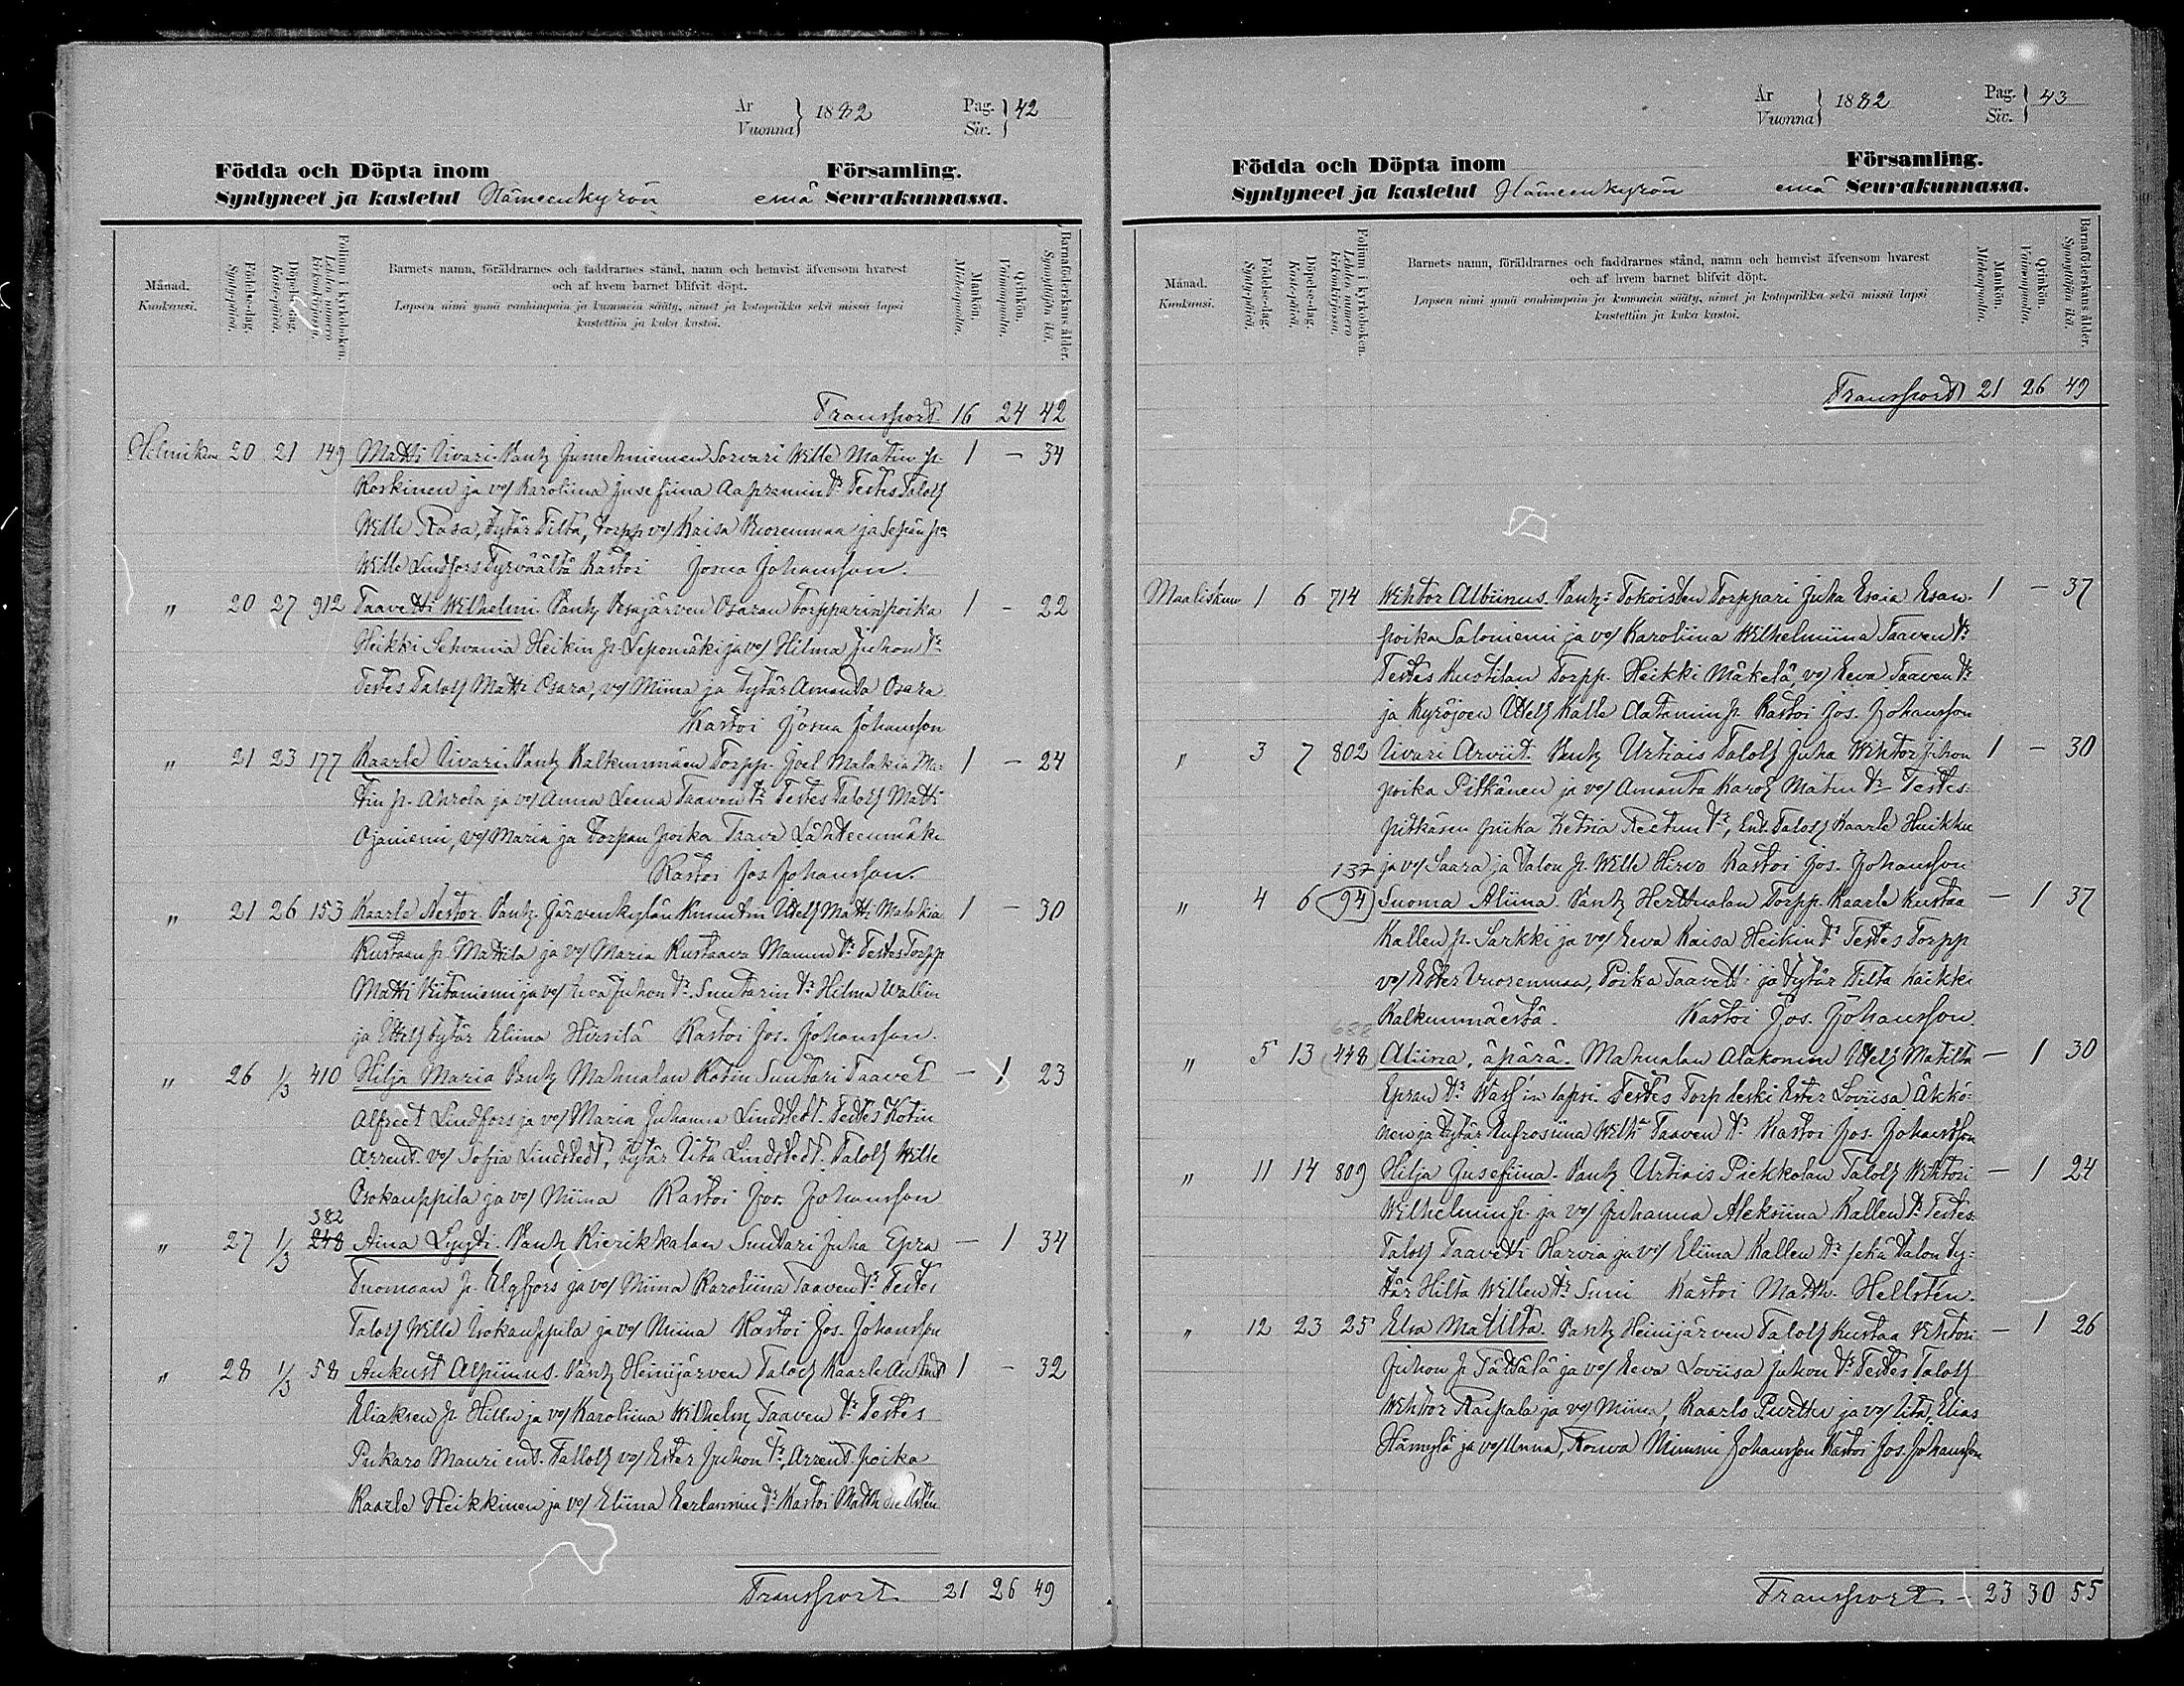 År
Vuonna } 1882 Pag.
Siv. } 42
Födda och Döpta inom Församling.
Syntyneet ja kastetut Hämeenkyrön emä Seurakunnassa.
Månad.
Kuukausi.
Födelse-dag.
Syntypäivä.
Döpelse-dag.
Kastepäivä.
Folium i kyrkoboken.
Lehden numero kirkonkirjassa.
Barnets namn, föräldrarnes och faddrarnes stånd, namn och hemvist äfvensom hvarest
och af hvem barnet blifvit döpt.
Lapsen nimi ynnä vanhimpain ja kummein sääty, nimet ja kotopaikka sekä missä lapsi
kastettiin ja kuka kastoi.
Mankön.
Miehenpuolia.
Qvinkön.
Vaimonpuolia.
Barnaföderskans ålder.
Synnyttäjän ikä.
Transport 16 24 42
Helmikuu 20 21 149 Matti Iivari. Vanh Sorvari Wille Matin p. 1 – 34
Koskinen ja vo/ Karoliina Jusefiina Aapramin tr Testes Taloll
Wille Rasa, tytär Tilta, torpp vo/ Kaisa Vuorenmaa ja Sepän pa
Wille Lindfors Tyrväältä Kastoi Josua Johansson.
" 20 27 912 Taavetti Wilhelmi Vanh Vesajärven Osaran Torpparin poika 1 – 22
Heikki Sehvania Heikin p. Leponiäki ja vo/ Hilma Juhon tr
Testes Taloll Matti Osara, vo/ Miina ja tytär Amanda Osara
Kastoi Josua Johansson
" 21 23 177 Kaarle Iivari. Vanh Kalkunmäen Torpp. Joel Malakia Ma- 1 – 24
tin p. Ahrola ja vo/ Anna Leena Taaven tr Testes Taloll Matti
Ojaniemi, vo/ Maria ja Torpan poika Taave Lähteenmäki
Kastoi Jos Johansson.
" 21 26 153 Kaarle Nestor. Vanh. Järvenkylän Knuutin Itsell Matti Malakia 1 – 30
Kustaan p. Mattila ja vo/ Maria Kustaava Mannun tr Testes Torpp
Matti Viitaniemi ja vo/ Eeva Juhon tr. Suutarin tr Hilma Wallin
ja Itsell tytär Eliina Hirsilä Kastoi Jos. Johansson.
" 26 1/3 410 Hilja Maria Vanh Mahnalan Kotin Suutari Taavet – 1 23
Alfreet Lindfors ja vo/ Maria Juhanna Lindstedt. Testes Kotin
Arrend. vo/ Sofia Lindstedt, tytär Iita Lindstedt. Taloll Wille
Isokauppila ja vo/ Miina Kastoi Jos. Johansson
382
" 27 1/3 248 Aina Lyyti. Vanh Kierikkalan Suutari Juha Epra – 1 34
Tuomaan p. Elgfors ja vo/ Miina Karoliina Taaven tr Testes
Taloll Wille Isokauppila ja vo/ Miina Kastoi Jos. Johansson
" 28 1/3 58 Aukust Alpiinus. Vanh Heinijärven Taloll Kaarle Aukust 1 – 32
Eliaksen p. Hillu ja vo/ Karoliina Wilhelm Taaven tr Testes
Pukaro Mauri ent. Talloll vo/ Ester Juhon tr, Arrend. poika
Kaarle Heikkinen ja vo/ Eliina Eerlannin tr Kastoi Matth Hellstén
Transport 21 26 49
År
Vuonna } 1882 Pag.
Siv. } 43
Födda och Döpta inom Församling.
Syntyneet ja kastetut Hämeenkyrön emä Seurakunnassa.
Månad.
Kuukausi.
Födelse-dag.
Syntypäivä.
Döpelse-dag.
Kastepäivä.
Folium i kyrkoboken.
Lehden numero kirkonkirjassa.
Barnets namn, föräldrarnes och faddrarnes stånd, namn och hemvist äfvensom hvarest
och af hvem barnet blifvit döpt.
Lapsen nimi ynnä vanhimpain ja kummein sääty, nimet ja kotopaikka sekä missä lapsi
kastettiin ja kuka kastoi.
Mankön.
Miehenpuolia.
Qvinkön.
Vaimonpuolia.
Barnaföderskans ålder.
Synnyttäjän ikä.
Transport 21 26 49
Maaliskuu 1 6 714 Wihtor Albiinus. Vanh: Tokoisten Torppari Juha Esaia Esan- 1 – 37
poika Saloniemi ja vo/ Karoliina Wilhelmiina Taaven tr
Testes Kustilan Torpp. Heikki Mäkelä, vo/ Eeva Taaven tr
ja Kyröjoen Itsell Kalle Aatamin p. Kastoi Jos. Johansson
" 3 7 802 Iivari Arviit. Vanh Urtiais Taloll Juha Wihtor Juhon 1 – 30
poika Pitkänen ja vo/ Amanta Karol Matin tr Testes.
Pitkäsen piika Ketria Reetun tr, Ent. Taloll Kaarle Huikku
ja vo/ Saara ja talon p. Wille Hirvo Kastoi Jos. Johansson
137
" 4 6 94 Suoma Aliina. Vanh Herttualan Torpp. Kaarle Kustaa – 1 37
Kallen p. Sarkki ja vo/ Eeva Kaisa Heikin tr Testes Torpp
vo/ Ester Vuorenmaa, Poika Taavetti ja tytär Tilta kaikki
Kalkunmäestä. Kastoi Jos. Johansson.
688
" 5 13 448 Aliina, äpärä. Mahnalan Alakonnin Itsell Matilta – 1 30
Epran tr lapsi. Testes Torp leski Ester Loviisa Äkkö-
nen ja tytär Eufrosiina Wilhna Taaven tr Kastoi Jos. Johansson
" 11 14 809 Hilja Jusefiina. Vanh Urtiais Piekkolan Taloll Wihtori – 1 24
Wilhelmin p. ja vo/ Juhanna Aleksiina Kallen tr Testes
Taloll Taavetti Harvia ja vo/ Eliina Kallen tr sekä talon ty-
tär Hilta Willen tr Suni Kastoi Matth. Hellstén.
" 12 23 25 Elsa Matilta. Vanh Heinijärven Taloll Kustaa Wihtori – 1 26
Juhon p. Tättälä ja vo/ Eeva Loviisa Juhon tr Testes Taloll
Wihtor Raipala ja vo/ Miina, Kaarlo Purttu ja vo/ Iita, Elias
Hämylä ja vo/ Anna, Rouva Mimmi Johansson Kastoi Jos. Johansson
Transport 23 30 55